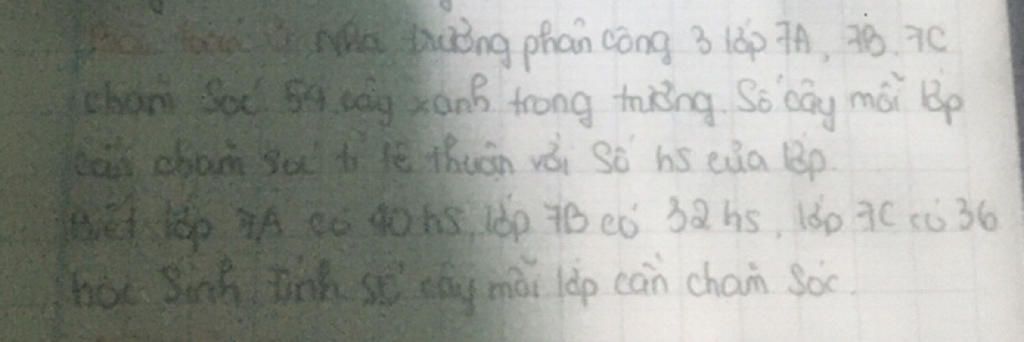 Bài toán Nhà trường phân công 3 lớp 7A, 7B, 7C
chăm sóc 54 cây xanh trong trường. Số cây mỗi lớp
cần chăm sóc tỉ lệ thuận với số hs của lớp.
Biết lớp 7A có 40 hs, lớp 7B có 32 hs, lớp 7C có 36
học sinh. Tính số cây mỗi lớp cần chăm sóc.